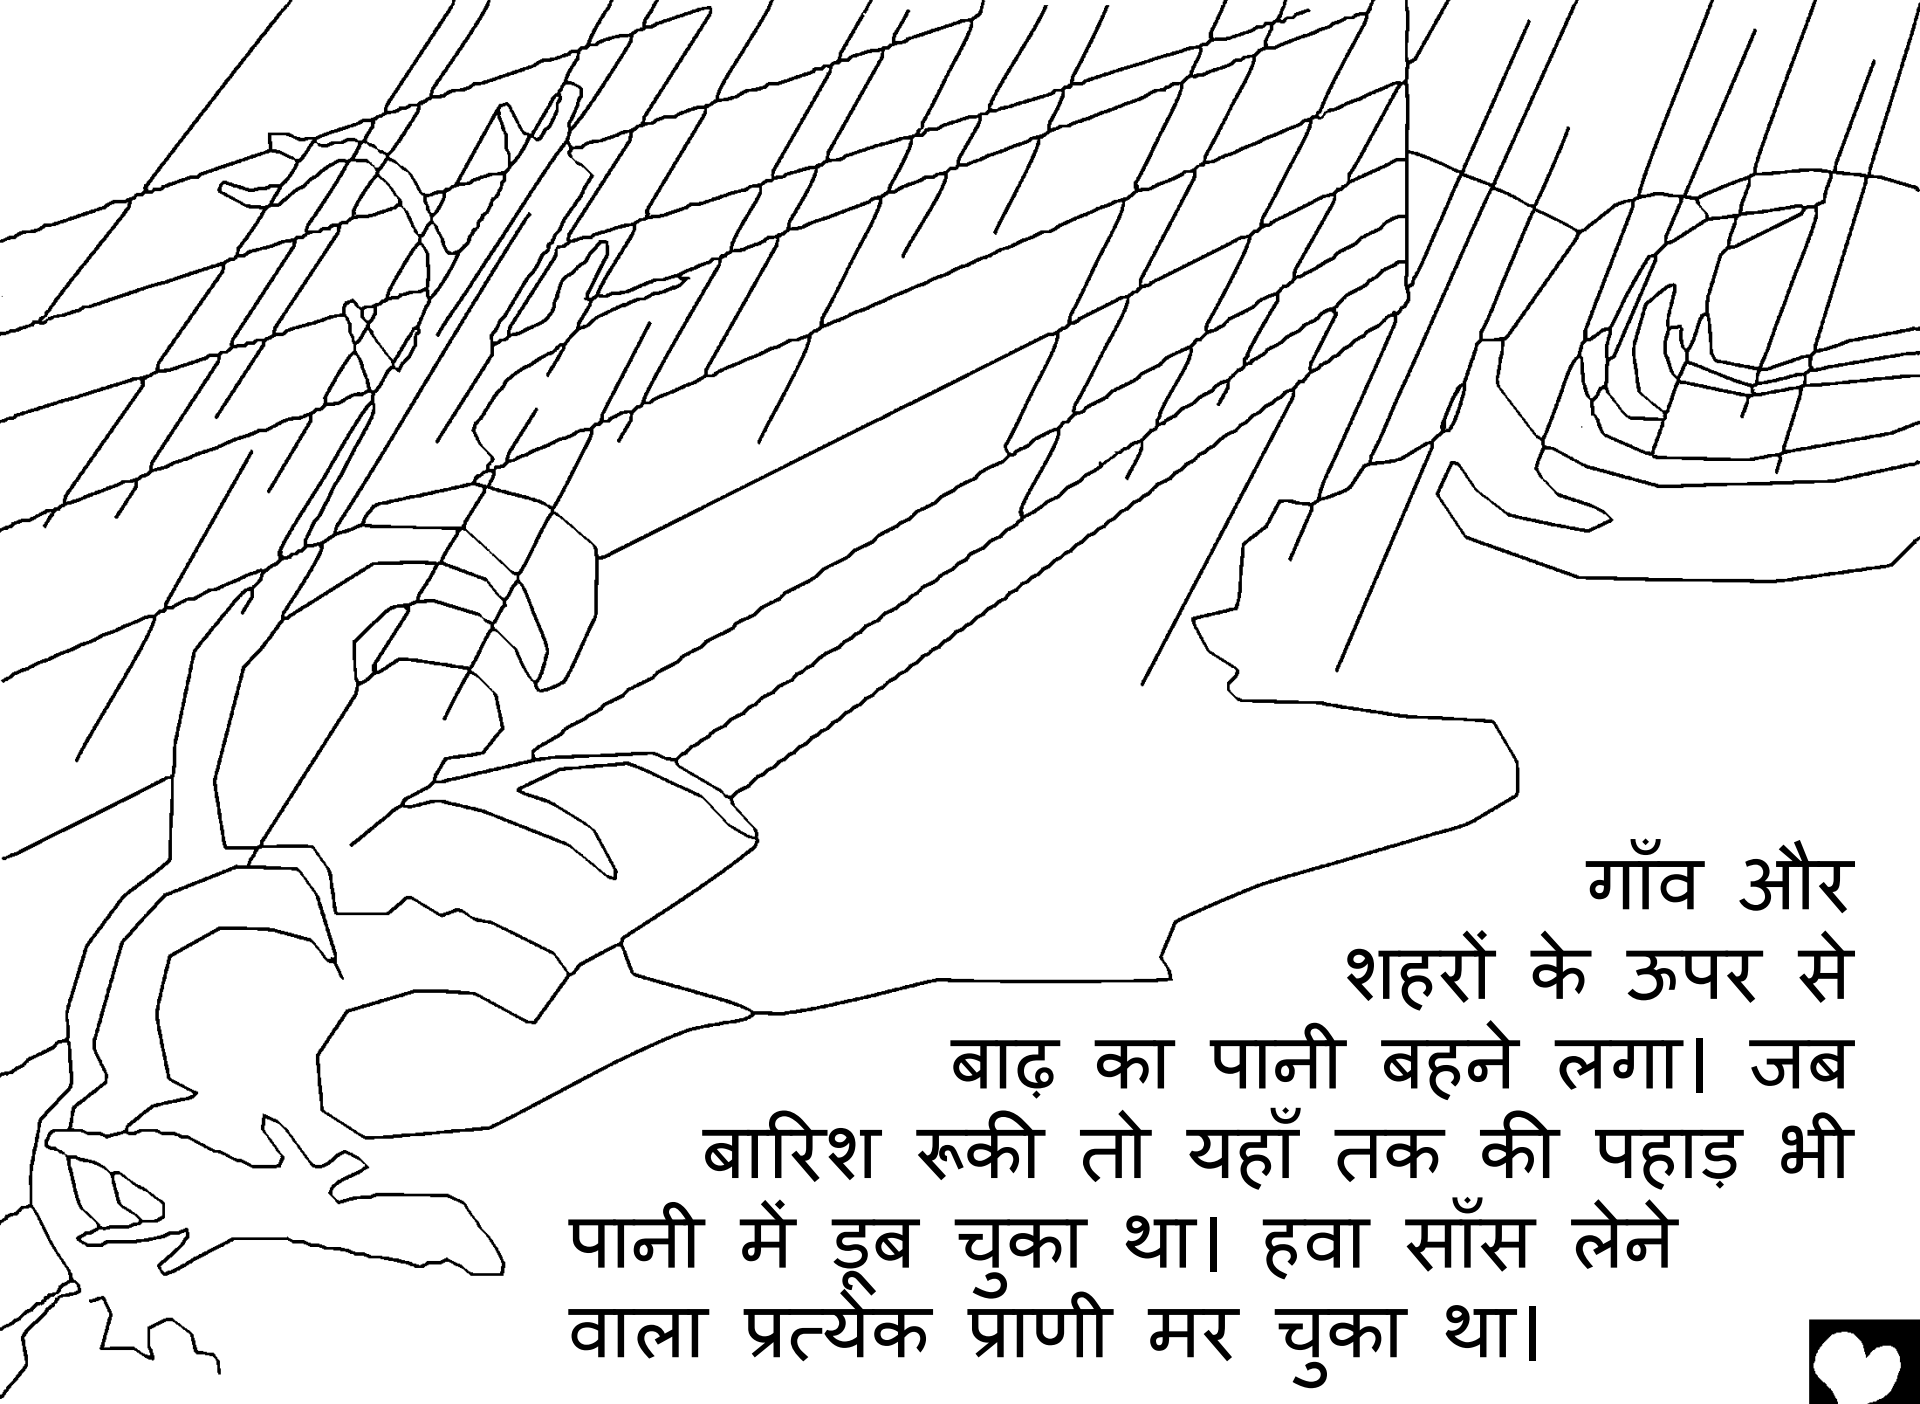 गाँव और
शहरों के ऊपर से
बाढ़ का पानी बहने लगा। जब
बारिश रूकी तो यहाँ तक की पहाड़ भी
पानी में डूब चुका था। हवा साँस लेने
वाला प्रत्येक प्राणी मर चुका था।